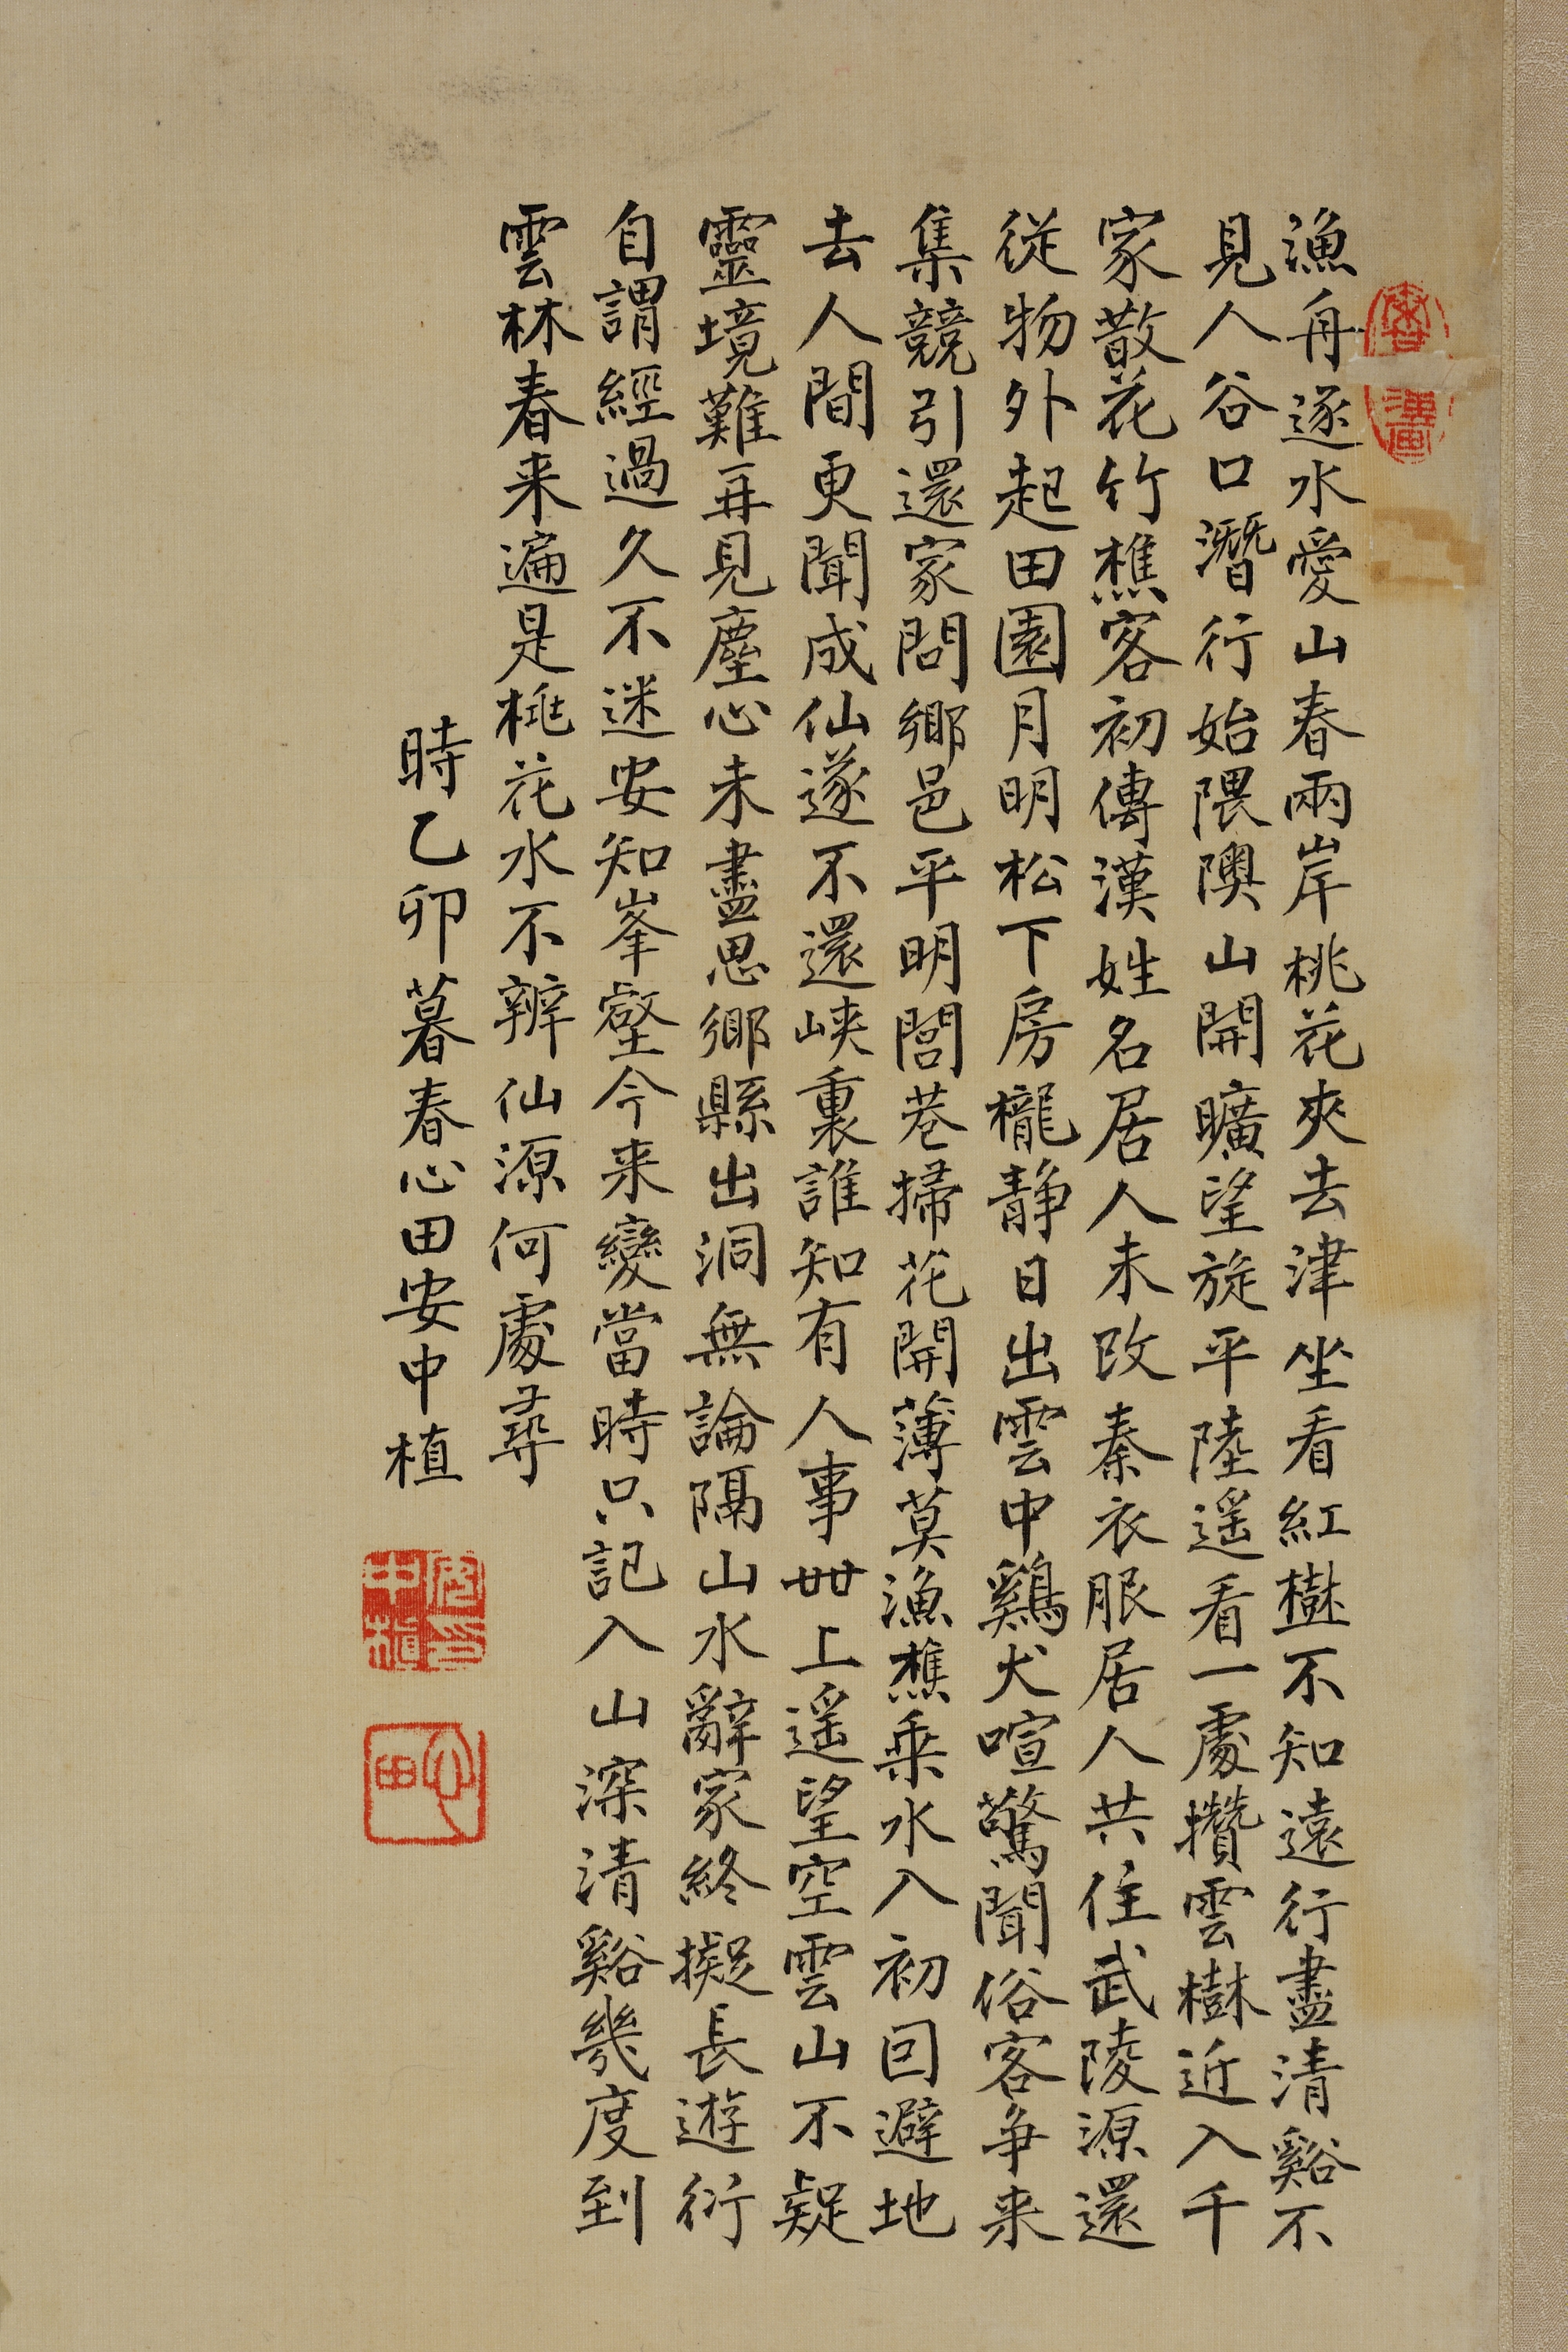 漁舟逐水愛山春兩岸桃花夾去津坐看紅樹不知遠行盡清谿不
見人谷口潛行始隈隩山開曠望旋平陸遥看一處攢雲樹近入千
家散花竹樵客初傳漢姓名居人未改秦衣服居人共住武陵源還
從物外起田園月明松下房櫳静日出雲中鷄犬喧驚聞俗客争来
集競引還家問鄉邑平明閭巷掃花開薄莫漁樵乗水入初回避地
去人間更聞成仙遂不還峡裏誰知有人事世上遥望空雲山不疑
靈境難再見塵心未盡思鄉縣出洞無論隔山水辭家終擬長遊衍
自謂經過久不迷安知峯壑今来變當時只記入山深清谿幾度到
雲林春来遍是桃花水不辨仙源何處尋
時乙卯暮春心田安中植
安中植印
心田